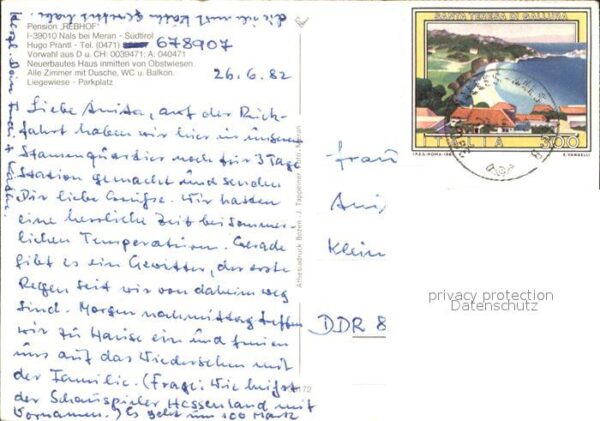 die wir mit Karten
Pension „REBHOF"
I-39010 Nals bei Meran - Südtirol
Hugo Prantl - Tel. (0471) 678907
Vorwahl aus D u. CH: 0039471; A: 040471
Neuerbautes Haus inmitten von Obstwiesen.
Alle Zimmer mit Dusche, WC u. Balkon.
Liegewiese - Parkplatz
26.6.82
Liebe Anita, auf der Rück-
fahrt haben wir hier in unserem
Stammquartier noch für 3 Tage
Station gemacht und senden
Dir liebe Grüße. Wir hatten
eine herrliche Zeit bei sommer-
lichen Temperaturen. Gerade
gibt es ein Gewitter, der erste
Regen seit wir von daheim weg
sind. Morgen nachmittag treffen
wir zu Hause ein und freuen
uns auf das Wiedersehen mit
der Familie. (Frage: Wie heißt
der Schauspieler Hassenland mit
Vornamen.) Es geht um 100 Mark
Herzl. Dein
Athesiadruck Bozen - J. Tappeiner Foto, Meran
172
SANTA TERESA DI GALLURA
ITALIA 300
I.P.Z.S.-ROMA-198
E. VANGELLI
Frau
Ani
Klein
DDR 8
privacy protection
Datenschutz